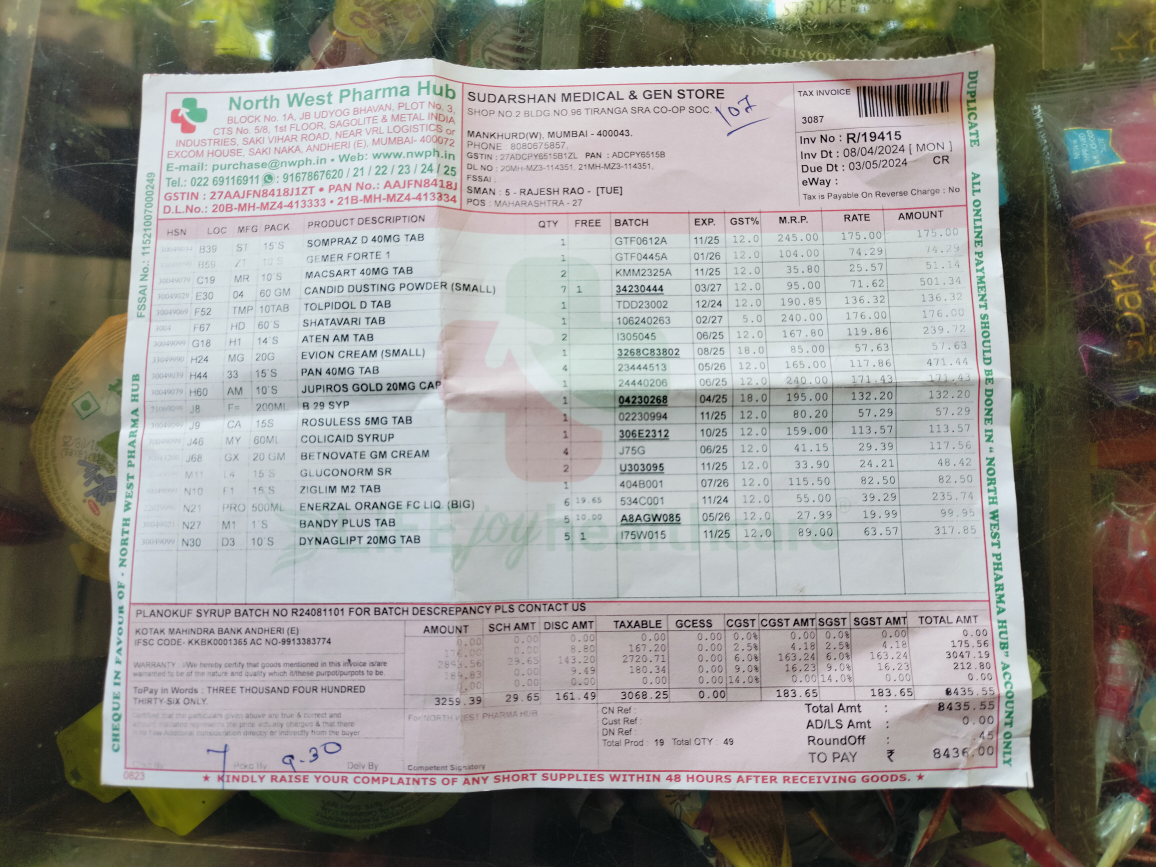 North West Pharma Hub
BLOCK No. 1A, JB UDYOG BHAVAN, PLOT No. 3,
CTS No. 5/8, 1st FLOOR, SAGOLITE & METAL INDIA
INDUSTRIES, SAKI VIHAR ROAD, NEAR VRL LOGISTICS or
EXCOM HOUSE, SAKI NAKA, ANDHERI (E), MUMBAI- 400072
E-mail: purchase@nwph.in • Web: www.nwph.in
Tel.: 022 69116911 : 9167867620 / 21 / 22 / 23 / 24 / 25
GSTIN : 27AAJFN8418J1ZT • PAN No.: AAJFN8418J
D.L.No.: 20B-MH-MZ4-413333 • 21B-MH-MZ4-413334
SUDARSHAN MEDICAL & GEN STORE
SHOP NO.2 BLDG NO.96 TIRANGA SRA CO-OP SOC.
107
MANKHURD(W), MUMBAI - 400043.
PHONE : 8080675857,
GSTIN : 27ADCPY6515B1ZL PAN : ADCPY6515B
DL NO : 20MH-MZ3-114351, 21MH-MZ3-114351,
FSSAI :
SMAN : 5 - RAJESH RAO - [TUE]
POS : MAHARASHTRA - 27
TAX INVOICE
3087
Inv No : R/19415
Inv Dt : 08/04/2024 [ MON ]
Due Dt : 03/05/2024 CR
eWay :
Tax is Payable On Reverse Charge : No
HSN LOC MFG PACK PRODUCT DESCRIPTION QTY FREE BATCH EXP. GST% M.R.P. RATE AMOUNT
B39 S1 15'S SOMPRAZ D 40MG TAB 1 GTF0612A 11/25 12.0 245.00 175.00 175.00
B59 ZT 10'S GEMER FORTE 1 1 GTF0445A 01/26 12.0 104.00 74.29 74.29
C19 MR 10'S MACSART 40MG TAB 2 KMM2325A 11/25 12.0 35.80 25.57 51.14
E30 04 60 GM CANDID DUSTING POWDER (SMALL) 7 1 34230444 03/27 12.0 95.00 71.62 501.34
F52 TMP 10TAB TOLPIDOL D TAB 1 TDD23002 12/24 12.0 190.85 136.32 136.32
F67 HD 60'S SHATAVARI TAB 1 106240263 02/27 5.0 240.00 176.00 176.00
G18 H1 14'S ATEN AM TAB 2 I305045 06/25 12.0 167.80 119.86 239.72
H24 MG 20G EVION CREAM (SMALL) 1 3268C83802 08/25 18.0 85.00 57.63 57.63
H44 33 15'S PAN 40MG TAB 4 23444513 05/26 12.0 165.00 117.86 471.44
H60 AM 10'S JUPIROS GOLD 20MG CAP 1 24440206 06/25 12.0 240.00 171.43 171.43
J8 F= 200ML B 29 SYP 1 04230268 04/25 18.0 195.00 132.20 132.20
J9 CA 15S ROSULESS 5MG TAB 1 02230994 11/25 12.0 80.20 57.29 57.29
J46 MY 60ML COLICAID SYRUP 1 306E2312 10/25 12.0 159.00 113.57 113.57
J68 GX 20 GM BETNOVATE GM CREAM 4 J75G 06/25 12.0 41.15 29.39 117.56
M11 L4 15'S GLUCONORM SR 2 U303095 11/25 12.0 33.90 24.21 48.42
N10 E1 15'S ZIGLIM M2 TAB 1 404B001 07/26 12.0 115.50 82.50 82.50
N21 PRO 500ML ENERZAL ORANGE FC LIQ (BIG) 6 19.65 534C001 11/24 12.0 55.00 39.29 235.74
N27 M1 1'S BANDY PLUS TAB 5 10.00 A8AGW085 05/26 12.0 27.99 19.99 99.95
N30 D3 10'S DYNAGLIPT 20MG TAB 5 1 I75W015 11/25 12.0 89.00 63.57 317.85
PLANOKUF SYRUP BATCH NO R24081101 FOR BATCH DESCREPANCY PLS CONTACT US
KOTAK MAHINDRA BANK ANDHERI (E)
IFSC CODE- KKBK0001365 AC NO-9913383774
WARRANTY : I/We hereby certify that goods mentioned in this invoice is/are
warranted to be of the nature and quality which it/these purpot/purpots to be.
ToPay in Words : THREE THOUSAND FOUR HUNDRED
THIRTY-SIX ONLY.
AMOUNT SCH AMT DISC AMT TAXABLE GCESS CGST CGST AMT SGST SGST AMT TOTAL AMT
0.00 0.00 0.00 0.00 0.00 0.0% 0.00 0.0% 0.00 0.00
0.00 8.80 167.20 0.00 2.5% 4.18 2.5% 4.18 175.56
2893.56 29.65 143.20 2720.71 0.00 6.0% 163.24 6.0% 163.24 3047.19
189.83 0.00 9.49 180.34 0.00 9.0% 16.23 9.0% 16.23 212.80
0.00 0.00 0.00 0.00 0.00 14.0% 0.00 14.0% 0.00 0.00
3259.39 29.65 161.49 3068.25 0.00 183.65 183.65 8435.55
For NORTH WEST PHARMA HUB
Competent Signatory
CN Ref :
Cust Ref :
DN Ref :
Total Prod : 19 Total QTY : 49
Total Amt : 8435.55
AD/LS Amt : 0.00
RoundOff : .45
TO PAY ₹ 8436.00
7 9.30
Delv By
0823
★ KINDLY RAISE YOUR COMPLAINTS OF ANY SHORT SUPPLIES WITHIN 48 HOURS AFTER RECEIVING GOODS. ★
FSSAI No.: 11521007000249
CHEQUE IN FAVOUR OF - NORTH WEST PHARMA HUB
DUPLICATE
ALL ONLINE PAYMENT SHOULD BE DONE IN "NORTH WEST PHARMA HUB" ACCOUNT ONLY